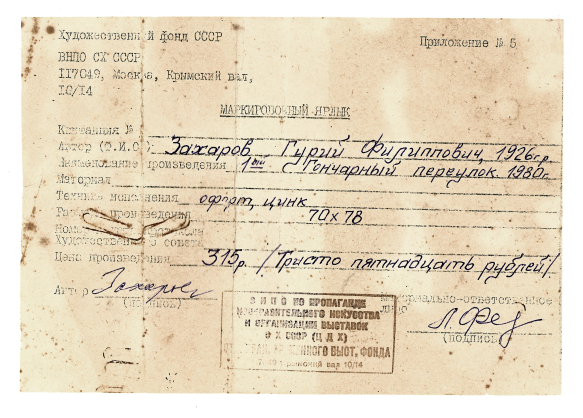 Художественный фонд СССР
Приложение № 5
ВНПО СХ СССР
117049, Москва, Крымский вал,
10/14
МАРКИРОВОЧНЫЙ ЯРЛЫК
Квитанция №
Автор (Ф.И.О.) Захаров Гурий Филиппович, 1926г.р.
Наименование произведения 1ый Гончарный переулок 1980г.
Материал
Техника исполнения офорт, цинк
произведения 70x78
Художественного совета
Цена произведения 315р. /Тристо пятнадцать рублей/
Автор Захаров
(подпись)
материально-ответственное
лицо
(подпись)
ВНПО ПО ПРОПАГАНДЕ
ИЗОБРАЗИТЕЛЬНОГО ИСКУССТВА
И ОРГАНИЗАЦИИ ВЫСТАВОК
СХ СССР (ЦДХ)
ВЫСТ. ФОНДА
Крымский вал 10/14